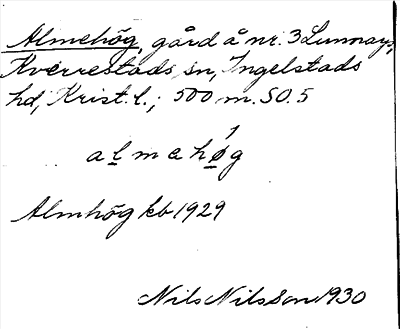 Almehög, gård å nr. 3 Lunnarp,
Kverrestads sn, Ingelstads
hd, Krist. l.; 500 m. SO. 5
a l m e h ø g
Almhög kb 1929
Nils Nilsson 1930